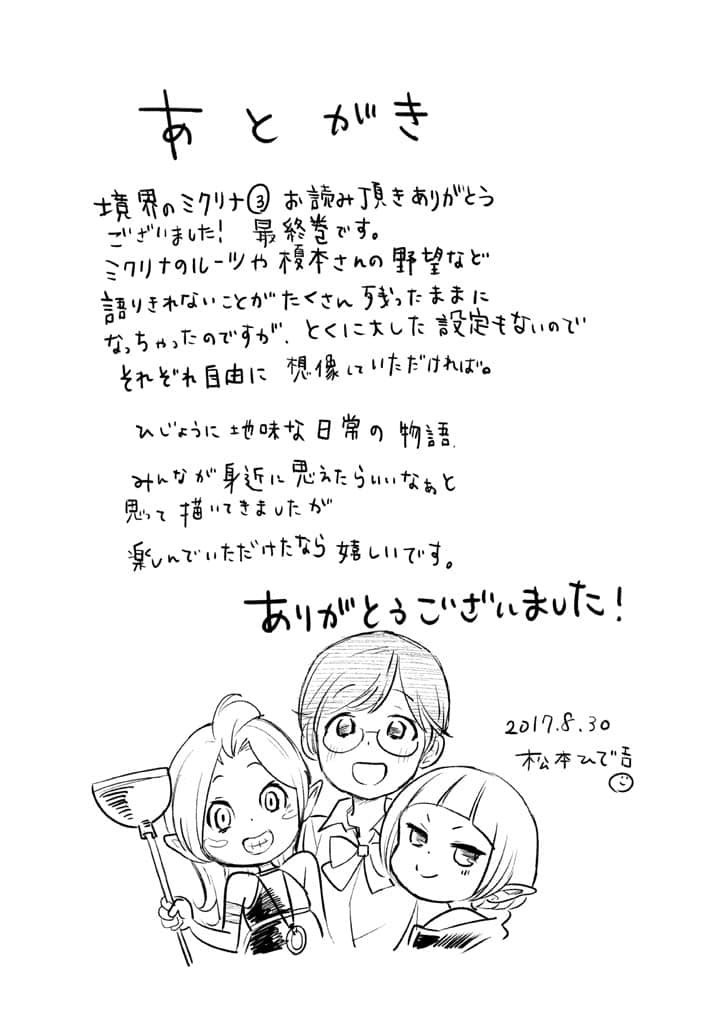 あとがき
境界のミクリナ③ お読み頂きありがとう
ございました! 最終巻です。
ミクリナのルーツや榎本さんの野望など
語りきれないことがたくさん残ったままに
なっちゃったのですが、とくに大した設定もないので
それぞれ自由に想像していただければ。
ひじょうに地味な日常の物語、
みんなが身近に思えたらいいなぁと
思って描いてきましたが
楽しんでいただけたなら嬉しいです。
ありがとうございました!
2017.8.30
松本ひで吉